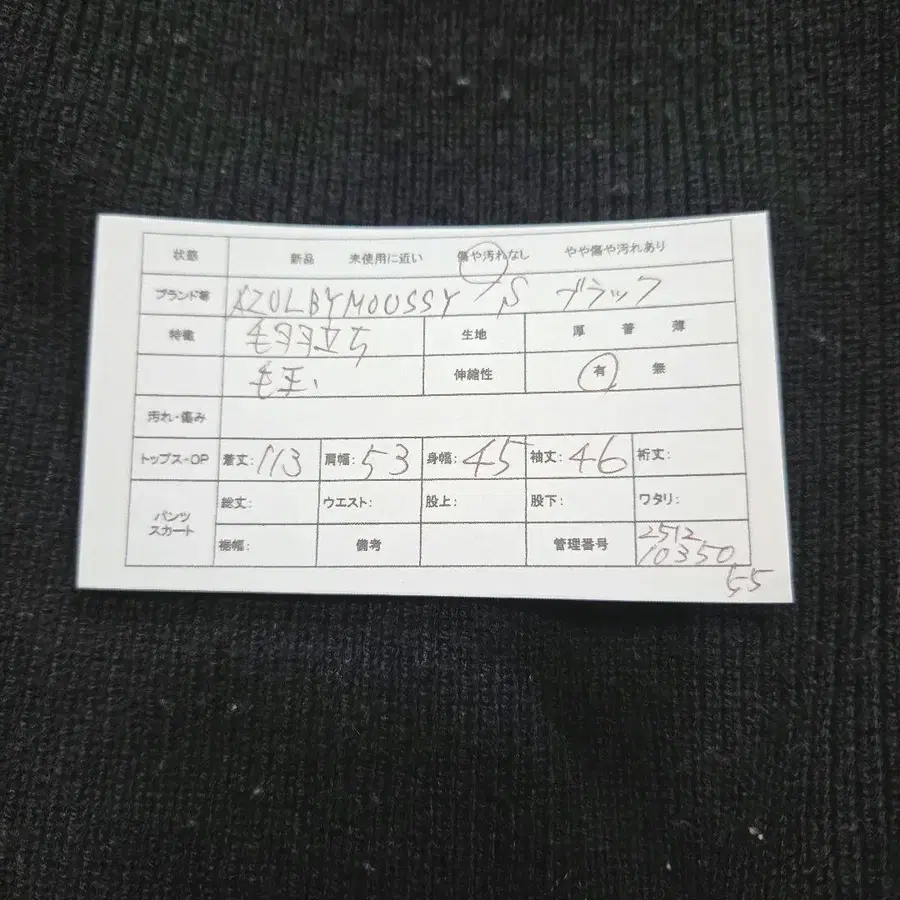 状態 新品 未使用に近い 傷や汚れなし やや傷や汚れあり
ブランド等 AZUL BY MOUSSY S ブラック
特徴 毛羽立ち 生地 厚 普 薄
毛玉、 伸縮性 有 無
汚れ・傷み
トップス-OP 着丈:113 肩幅:53 身幅:45 袖丈:46 裄丈:
パンツ スカート 総丈: ウエスト: 股上: 股下: ワタリ:
裾幅: 備考 管理番号 2512
10350
55